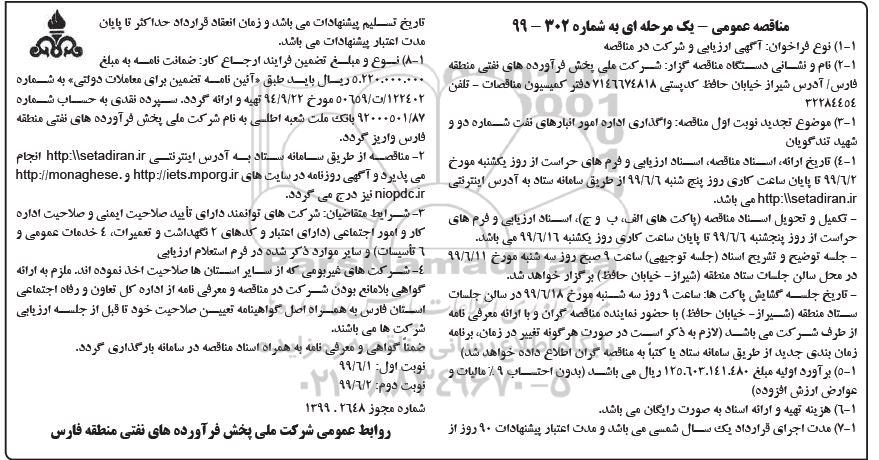 مناقصه عمومی – یک مرحله ای به شماره ۳۰۲ – ۹۹
۱-۱) نوع فراخوان: آگهی ارزیابی و شرکت در مناقصه
۲-۱) نام و نشانی دستگاه مناقصه گزار: شرکت ملی پخش فرآورده های نفتی منطقه
فارس/ آدرس شیراز خیابان حافظ کدپستی ۷۱۴۶۶۷۴۸۱۸ دفتر کمیسیون مناقصات – تلفن
۳۲۲۸۴۴۵۴
۳-۱) موضوع تجدید نوبت اول مناقصه: واگذاری اداره امور انبارهای نفت شماره دو و
شهید تندگویان
۴-۱) تاریخ ارائه، اسناد مناقصه، اسناد ارزیابی و فرم های حراست از روز یکشنبه مورخ
۹۹/۶/۲ تا پایان ساعت کاری روز پنج شنبه ۹۹/۶/۶ از طریق سامانه ستاد به آدرس اینترنتی
http:\\setadiran.ir می باشد.
– تکمیل و تحویل اسناد مناقصه (پاکت های الف، ب و ج)، اسناد ارزیابی و فرم های
حراست از روز پنجشنبه ۹۹/۶/۶ تا پایان ساعت کاری روز یکشنبه ۹۹/۶/۱۶ می باشد.
– جلسه توضیح و تشریح اسناد (جلسه توجیهی) ساعت ۹ صبح روز سه شنبه مورخ ۹۹/۶/۱۱
در محل سالن جلسات ستاد منطقه (شیراز– خیابان حافظ) برگزار خواهد شد.
– تاریخ جلسه گشایش پاکت ها: ساعت ۹ روز سه شنبه مورخ ۹۹/۶/۱۸ در سالن جلسات
ستاد منطقه (شیراز– خیابان حافظ) با حضور نماینده مناقصه گران و با ارائه معرفی نامه
از طرف شرکت می باشد (لازم به ذکر است در صورت هرگونه تغییر در زمان، برنامه
زمان بندی جدید از طریق سامانه ستاد یا کتباً به مناقصه گران اطلاع داده خواهد شد)
۵-۱) برآورد اولیه مبلغ ۱۲۵.۶۰۳.۱۴۱.۴۸۰ ریال می باشد (بدون احتساب ۹٪ مالیات و
عوارض ارزش افزوده)
۶-۱) هزینه تهیه و ارائه اسناد به صورت رایگان می باشد.
۷-۱) مدت اجرای قرارداد یک سال شمسی می باشد و مدت اعتبار پیشنهادات ۹۰ روز از
تاریخ تسلیم پیشنهادات می باشد و زمان انعقاد قرارداد حداکثر تا پایان
مدت اعتبار پیشنهادات می باشد.
۸-۱) نوع و مبلغ تضمین فرایند ارجاع کار: ضمانت نامه به مبلغ
۵.۲۲۰.۰۰۰.۰۰۰ ریال باید طبق «آئین نامه تضمین برای معاملات دولتی» به شماره
۱۲۳۴۰۲/ت/۵۰۶۵۹ مورخ ۹۴/۹/۲۲ تهیه و ارائه گردد. سپرده نقدی به حساب شماره
۹۲۰۰۰۵۰۱/۸۷ بانک ملت شعبه اطلسی به نام شرکت ملی پخش فرآورده های نفتی منطقه
فارس واریز گردد.
۲– مناقصه از طریق سامانه ستاد به آدرس اینترنتی http:\\setadiran.ir انجام
می پذیرد و آگهی روزنامه در سایت های http://iets.mporg.ir و http://monaghese.
niopdc.ir نیز درج می گردد.
۳– شرایط متقاضیان: شرکت های توانمند دارای تأیید صلاحیت ایمنی و صلاحیت اداره
کار و امور اجتماعی (دارای اعتبار و کدهای ۲ نگهداشت و تعمیرات، ۴ خدمات عمومی و
۶ تأسیسات) و سایر موارد ذکر شده در فرم استعلام ارزیابی
۴– شرکت های غیربومی که از سایر استان ها صلاحیت اخذ نموده اند. ملزم به ارائه
گواهی بلامانع بودن شرکت در مناقصه و معرفی نامه از اداره کل تعاون و رفاه اجتماعی
استان فارس به همراه اصل گواهینامه تعیین صلاحیت خود تا قبل از جلسه ارزیابی
شرکت ها می باشند.
ضمناً گواهی و معرفی نامه به همراه اسناد مناقصه در سامانه بارگذاری گردد.
نوبت اول: ۹۹/۶/۱
نوبت دوم: ۹۹/۶/۲
شماره مجوز ۲۶۴۸ . ۱۳۹۹
روابط عمومی شرکت ملی پخش فرآورده های نفتی منطقه فارس
پایگاه اطلاع رسانی مناقصه و مزایده
۰۲۱-۸۸۳۴۹۶۷۰-۵